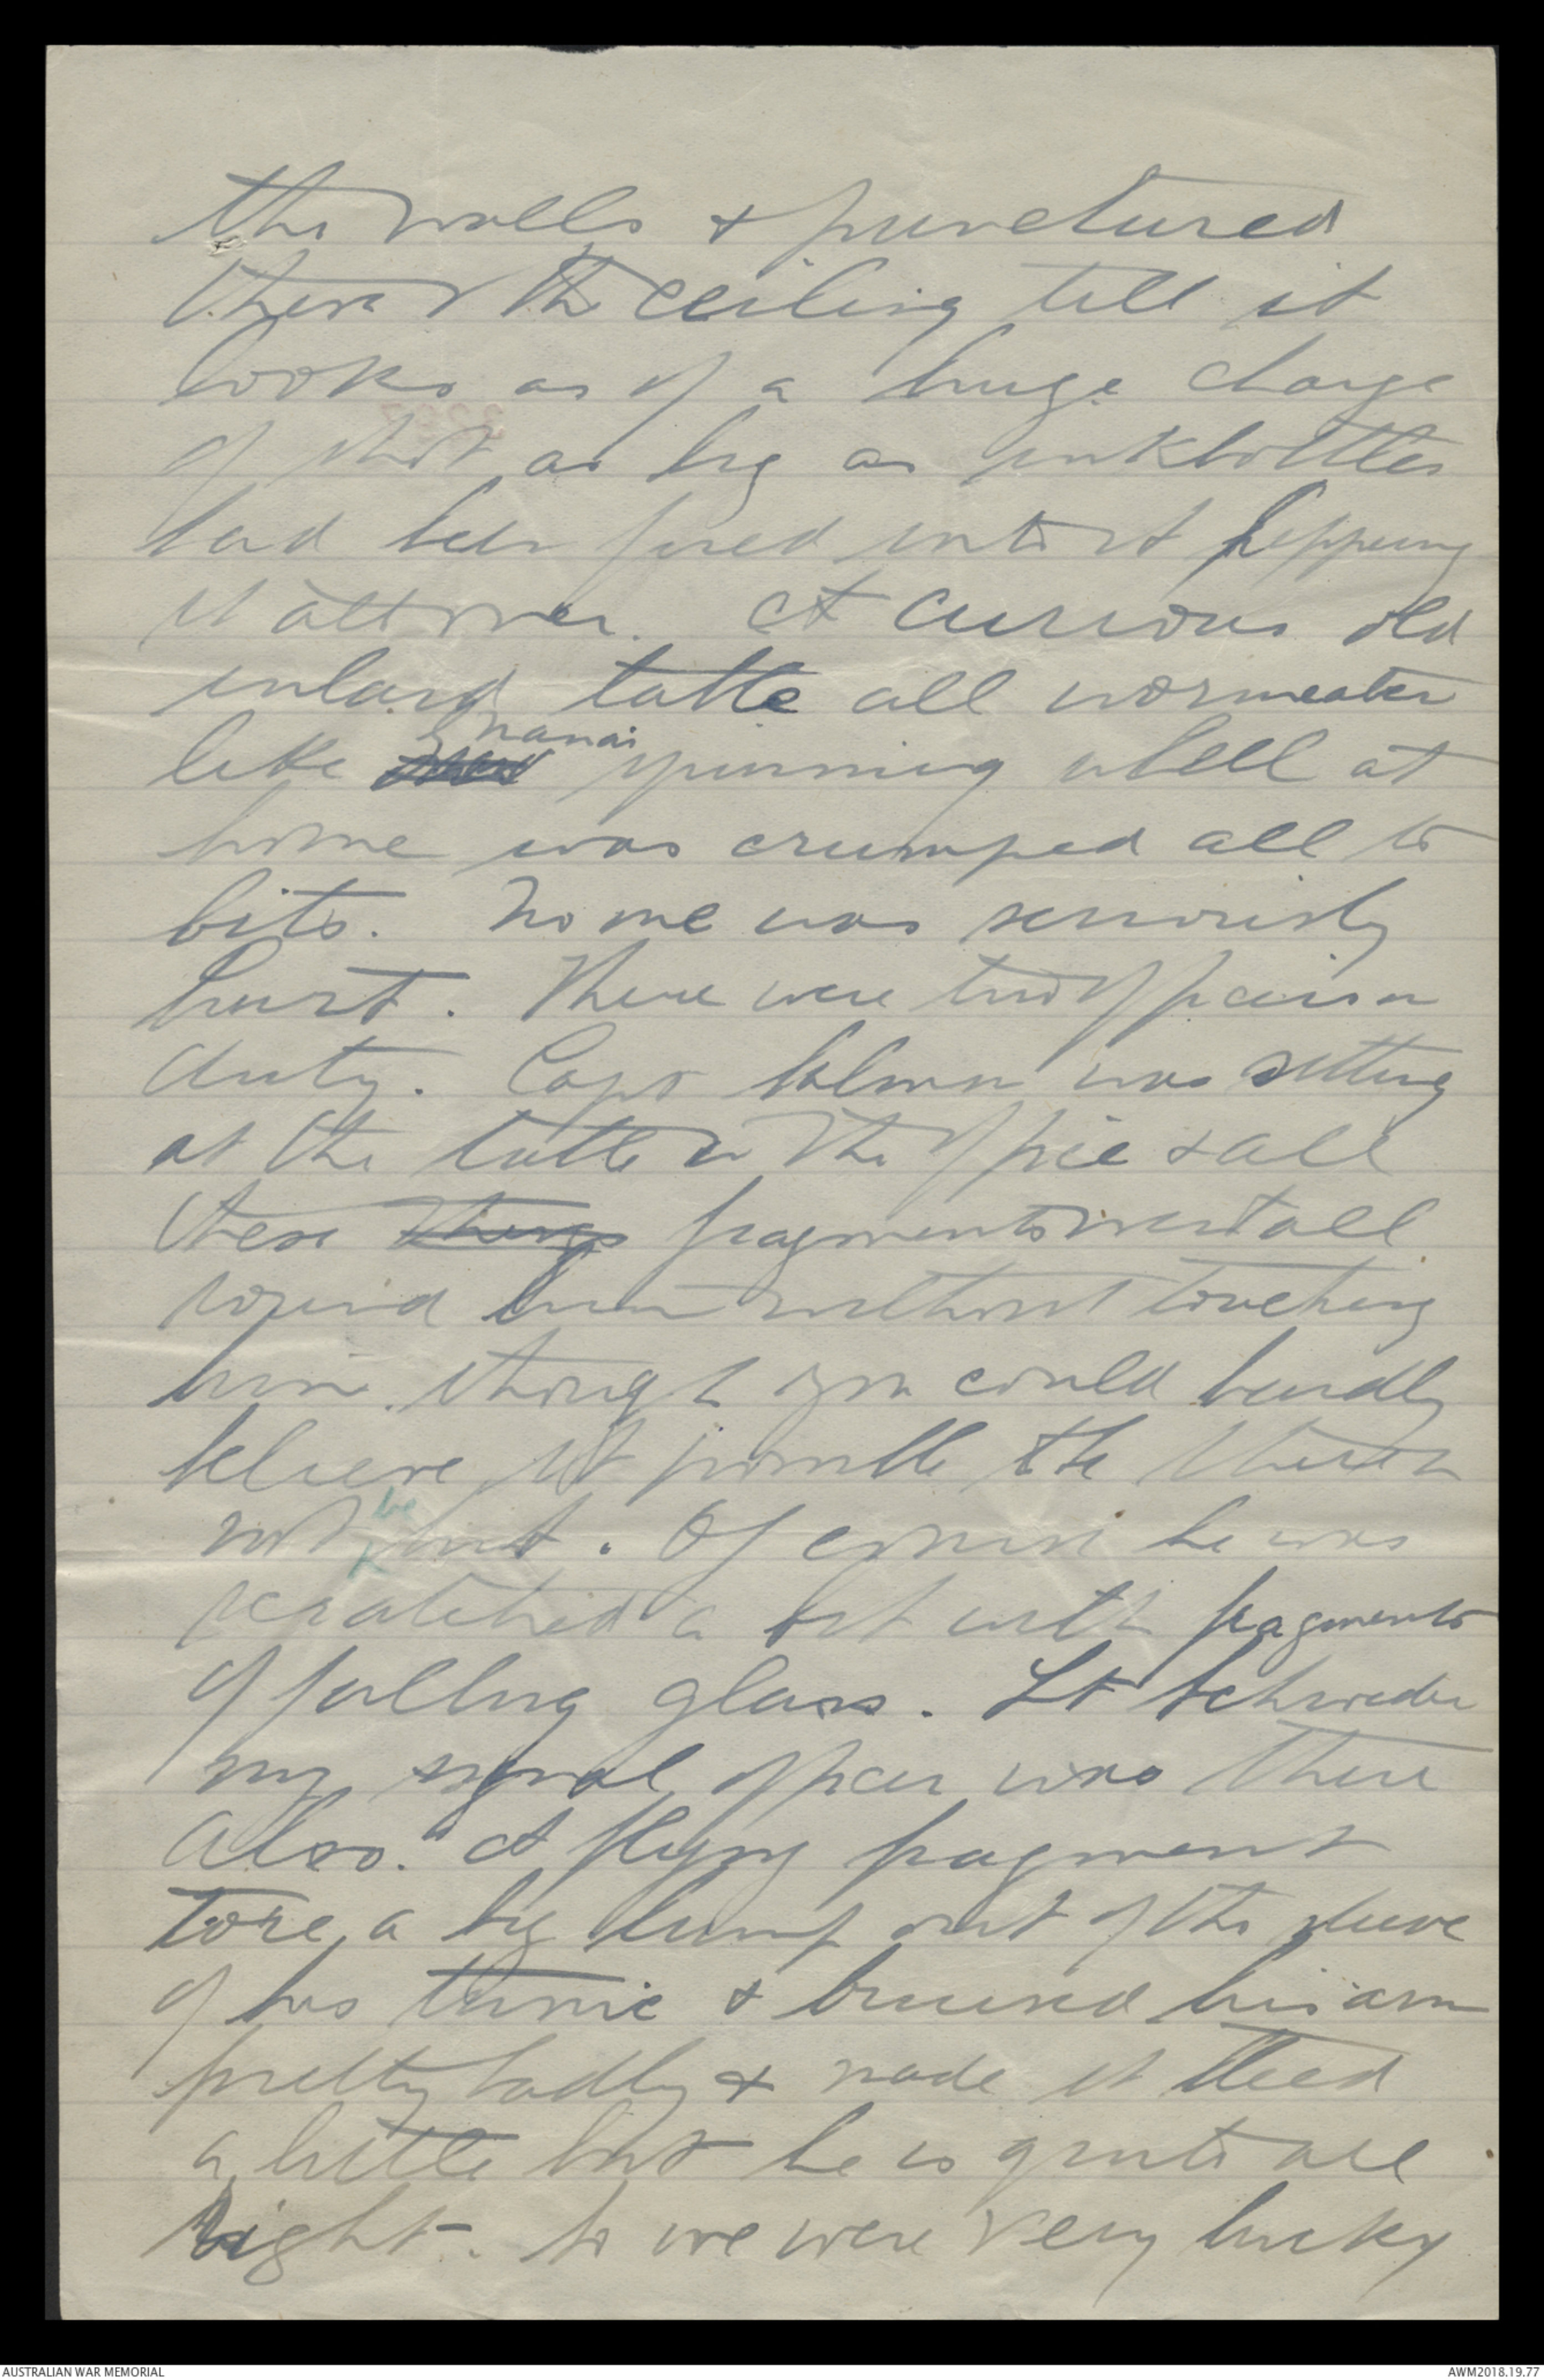 the walls & punctured
them & the ceiling till it
looks as if a huge charge
of shot as big as inkbottles
had been fired into it
it all over. A curious old
inlaid table all wormeaten
like Nana's spinning wheel at
home was crumped all to
bits. No one was seriously
hurt. There were two officers on
duty. Capt was sitting
at the table in the office & all
these things fragments went all
round him without touching
him though you could hardly
believe it possible
not be hit. Of course he was
scratched a bit with fragments
of falling glass. Lt Schroder
my signal officer was there
also. A flying fragment
tore a big lump out of the sleeve
of his tunic & bruised his arm
pretty badly & made it bleed
a little but he is quite all
right. So we were very lucky
AUSTRALIAN WAR MEMORIAL
AWM2018.19.77